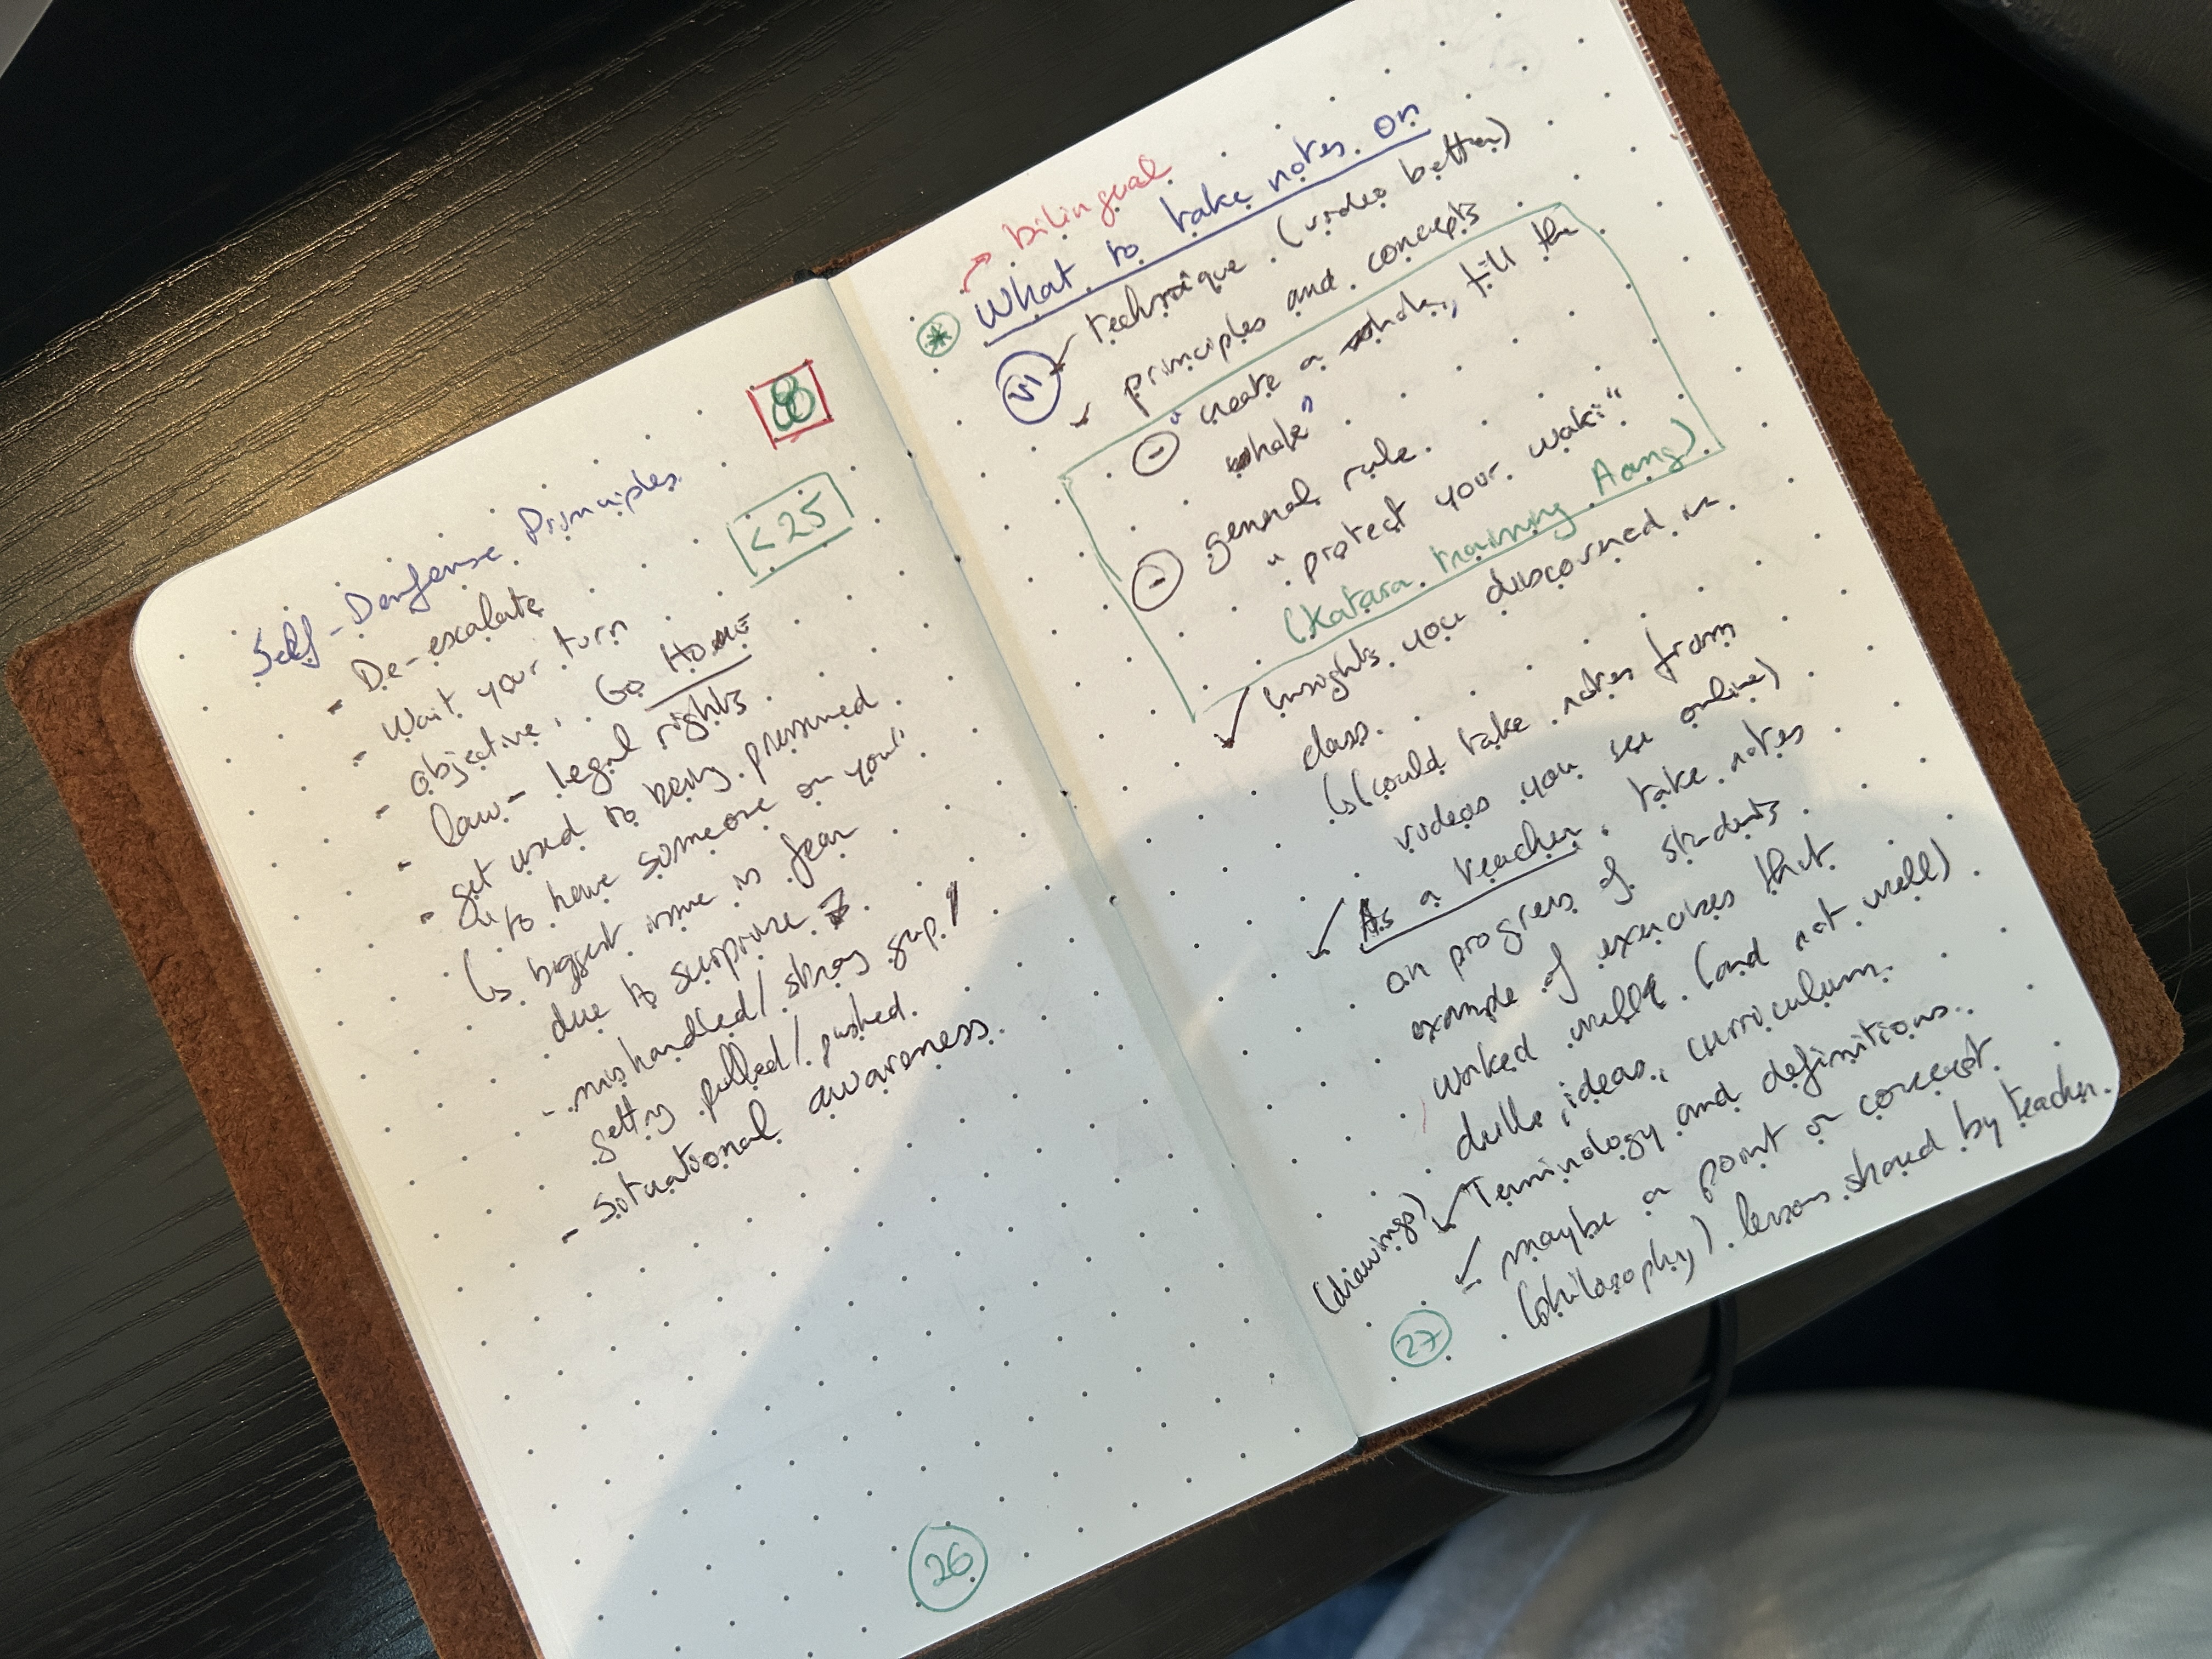 8
< 25
Self-Denfense Principles
- De-escalate
- Wait your turn
- objective, Go HOME
- law - legal rights
- get used to being pressured
↳ to have someone on you"
↳ biggest issue is fear
due to surprise
- mishandled / strong grip /
getting pulled / pushed.
- Situational awareness
26
→ bilingual
* What to take notes on
VI ✓ technique (video better)
✓ principles and concepts
- "create a whole, fill the
whole"
- general rule.
"protect your waki"
(Katara training Aang)
✓ insights you discovered in
class.
↳ (could take notes from
videos you see online)
✓ As a teacher, take notes
on progress of students
example of exercises that
worked well (and not well)
drills, ideas, curriculum.
(drawings) ✓ Terminology and definitions.
✓ maybe a point or concept
(philosophy) lessons shared by teacher.
27